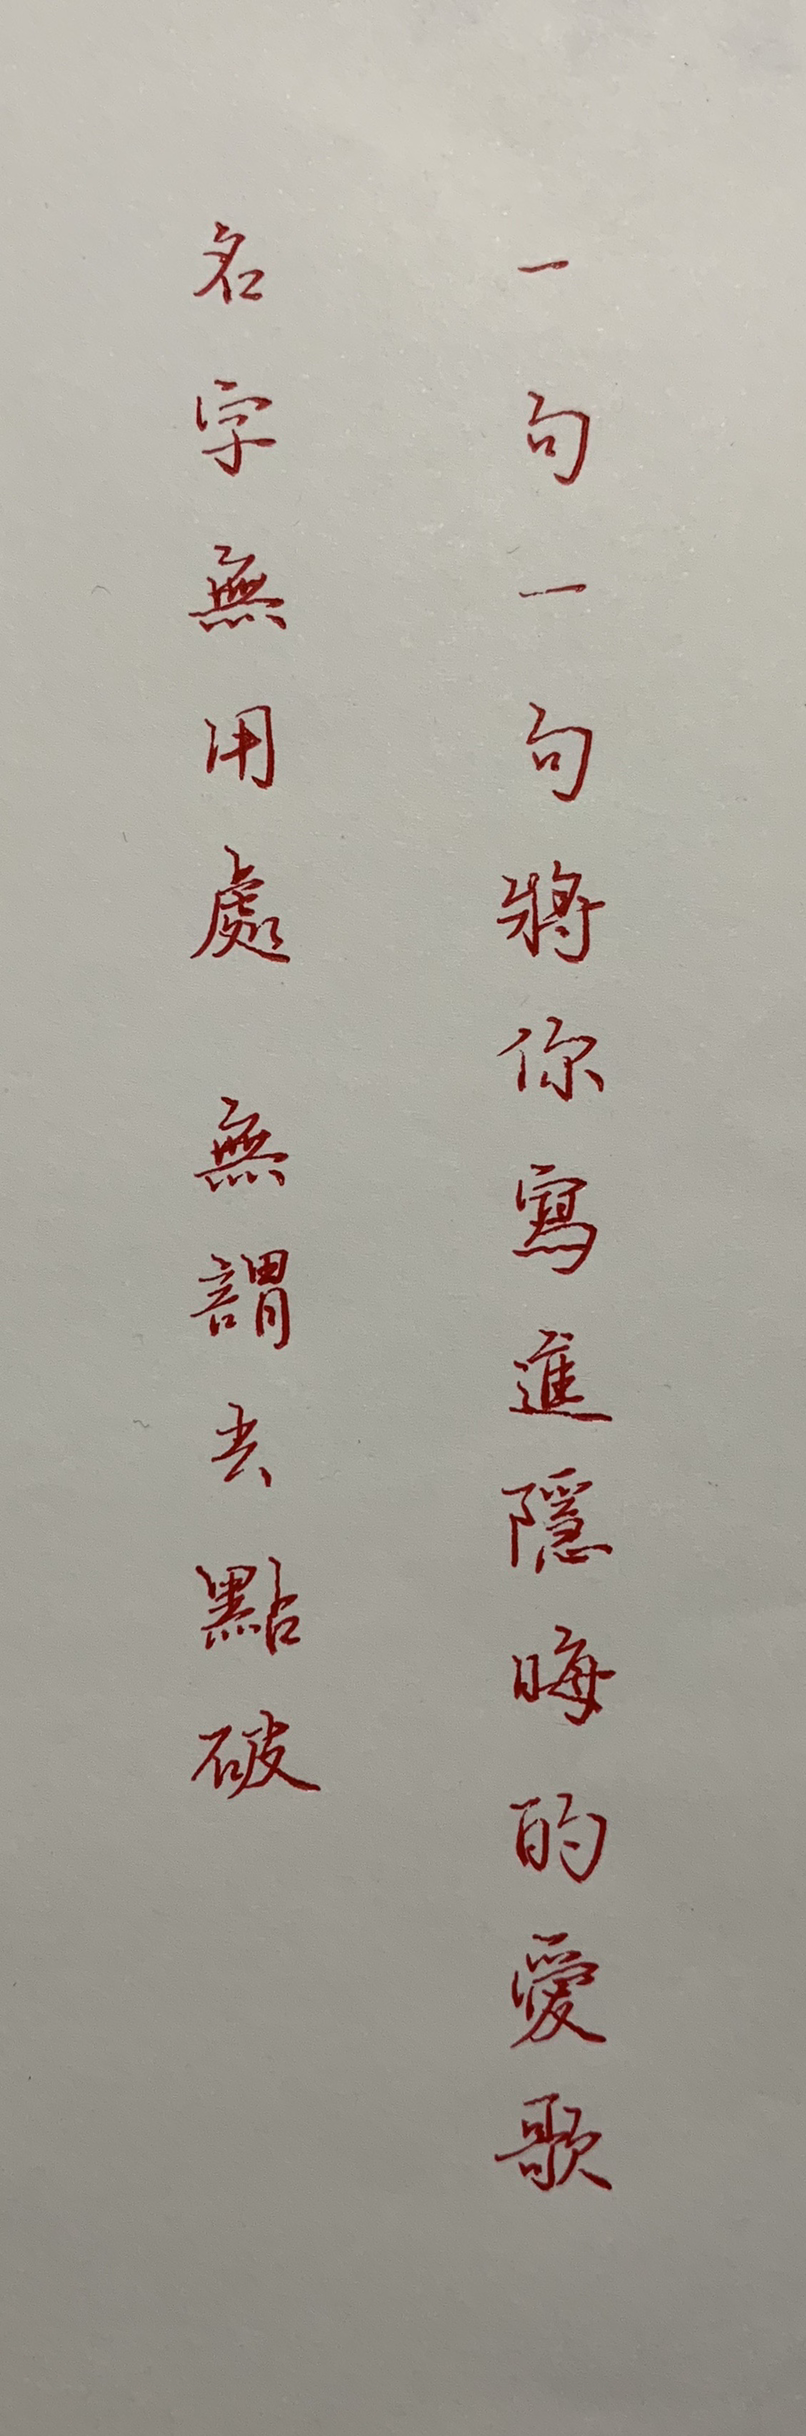 一句一句將你寫進隱晦的愛歌
名字無用處 無謂去點破